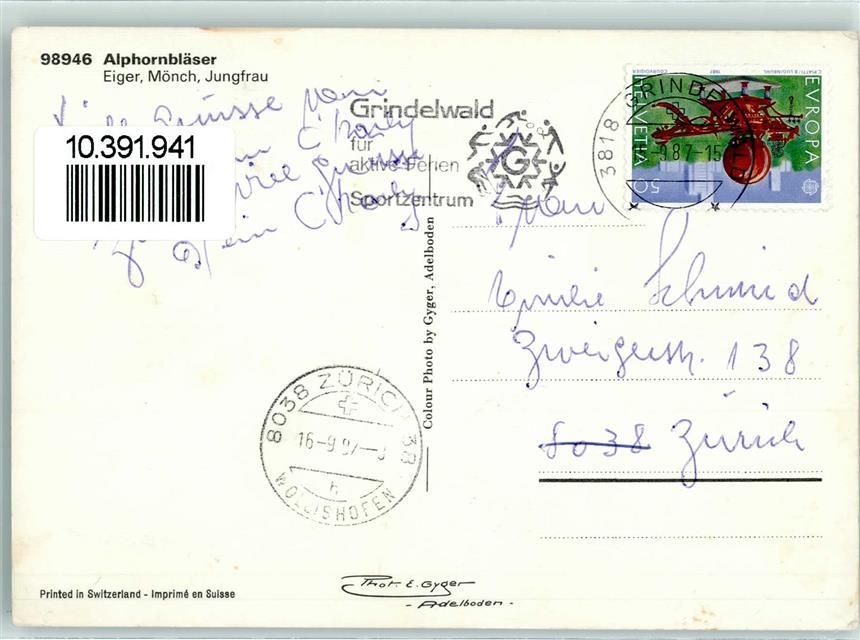 98946 Alphornbläser
Eiger, Mönch, Jungfrau
10.391.941
Grüsse
C'harly
viel Grüsse
Dein C'harly
Grindelwald
für
aktive Ferien
Sportzentrum
G
3818 GRINDELWALD
15-9.87-15
COURVOISIER 1987 C. PIATTI & LUDINBÜHL
HELVETIA 50
EVROPA
Colour Photo by Gyger, Adelboden
Emilie Schmid
Zwergerstr. 138
8038 Zürich
8038 ZÜRICH 38
16-9 87-
h
WOLLISHOFEN
Printed in Switzerland - Imprimé en Suisse
Phot. E. Gyger
- Adelboden -